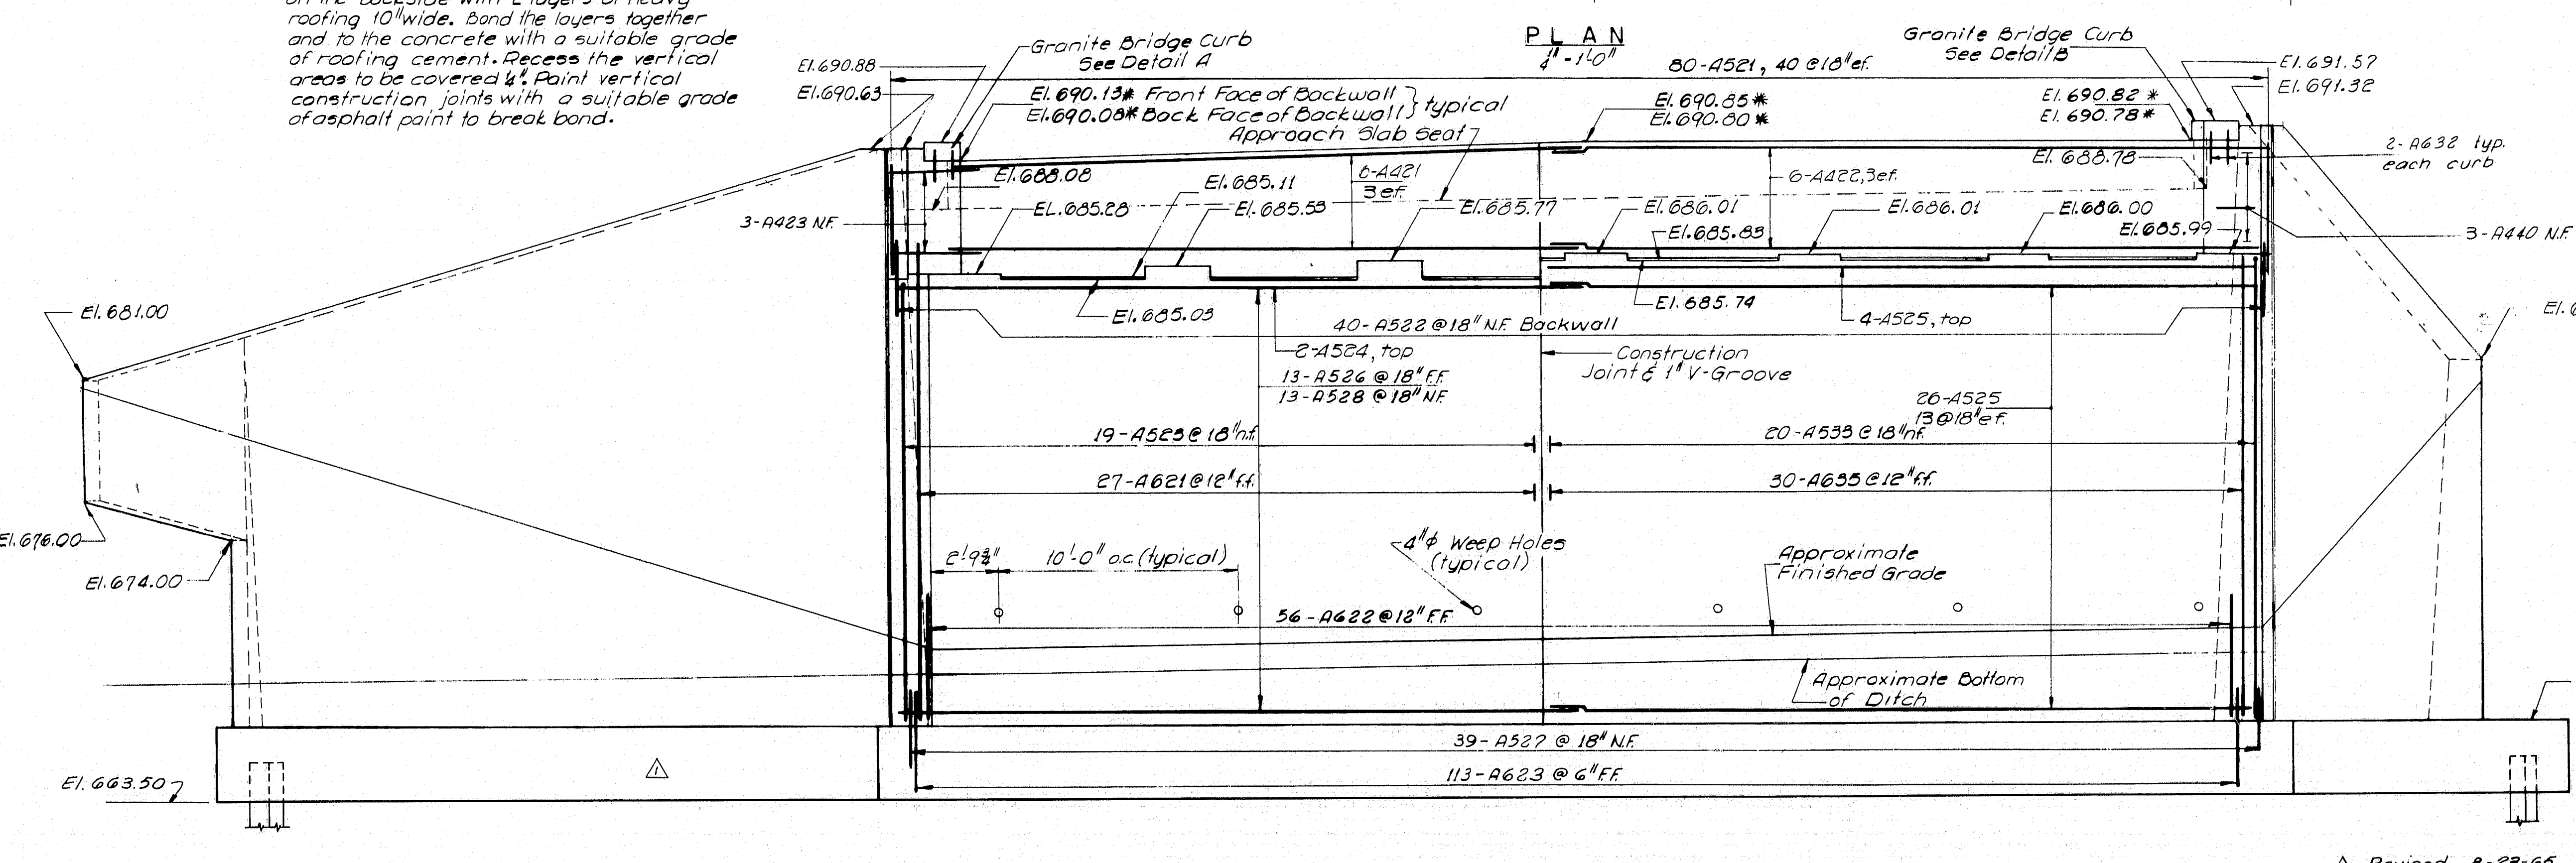 roofing 10" wide. Bond the layers together
and to the concrete with a suitable grade
of roofing cement. Recess the vertical
areas to be covered ¼". Paint vertical
construction joints with a suitable grade
of asphalt paint to break bond.
PLAN
¼" - 1'-0"
Granite Bridge Curb
See Detail A
Granite Bridge Curb
See Detail B
El. 690.88
El. 690.63
80-A521, 40 @ 18" ef.
El. 691.57
El. 691.32
El. 690.13* Front Face of Backwall } typical
El. 690.08* Back Face of Backwall
Approach Slab Seat
El. 690.85*
El. 690.80*
El. 690.82*
El. 690.78*
2-A632 typ.
each curb
El. 688.08
El. 685.11
6-A421
3 ef.
6-A422, 3 ef.
El. 688.78
3-A423 N.F.
EL. 685.28
El. 685.53
El. 685.77
El. 686.01
El. 686.01
El. 686.00
El. 685.83
El. 685.99
3-A440 N.F.
El. 681.00
El. 685.03
El. 685.74
40-A522 @ 18" N.F. Backwall
4-A525, top
2-A524, top
Construction
Joint & 1" V-Groove
13-A526 @ 18" F.F.
13-A528 @ 18" N.F.
26-A525
13 @ 18" ef.
19-A523 @ 18" n.f.
20-A533 @ 18" n.f.
27-A621 @ 12" f.f.
30-A635 @ 12" f.f.
El. 676.00
El. 674.00
2'-9¾"
10'-0" o.c. (typical)
4" ⌀ Weep Holes
(typical)
Approximate
Finished Grade
56-A622 @ 12" F.F.
Approximate Bottom
of Ditch
39-A527 @ 18" N.F.
1
113-A623 @ 6" F.F.
El. 663.50